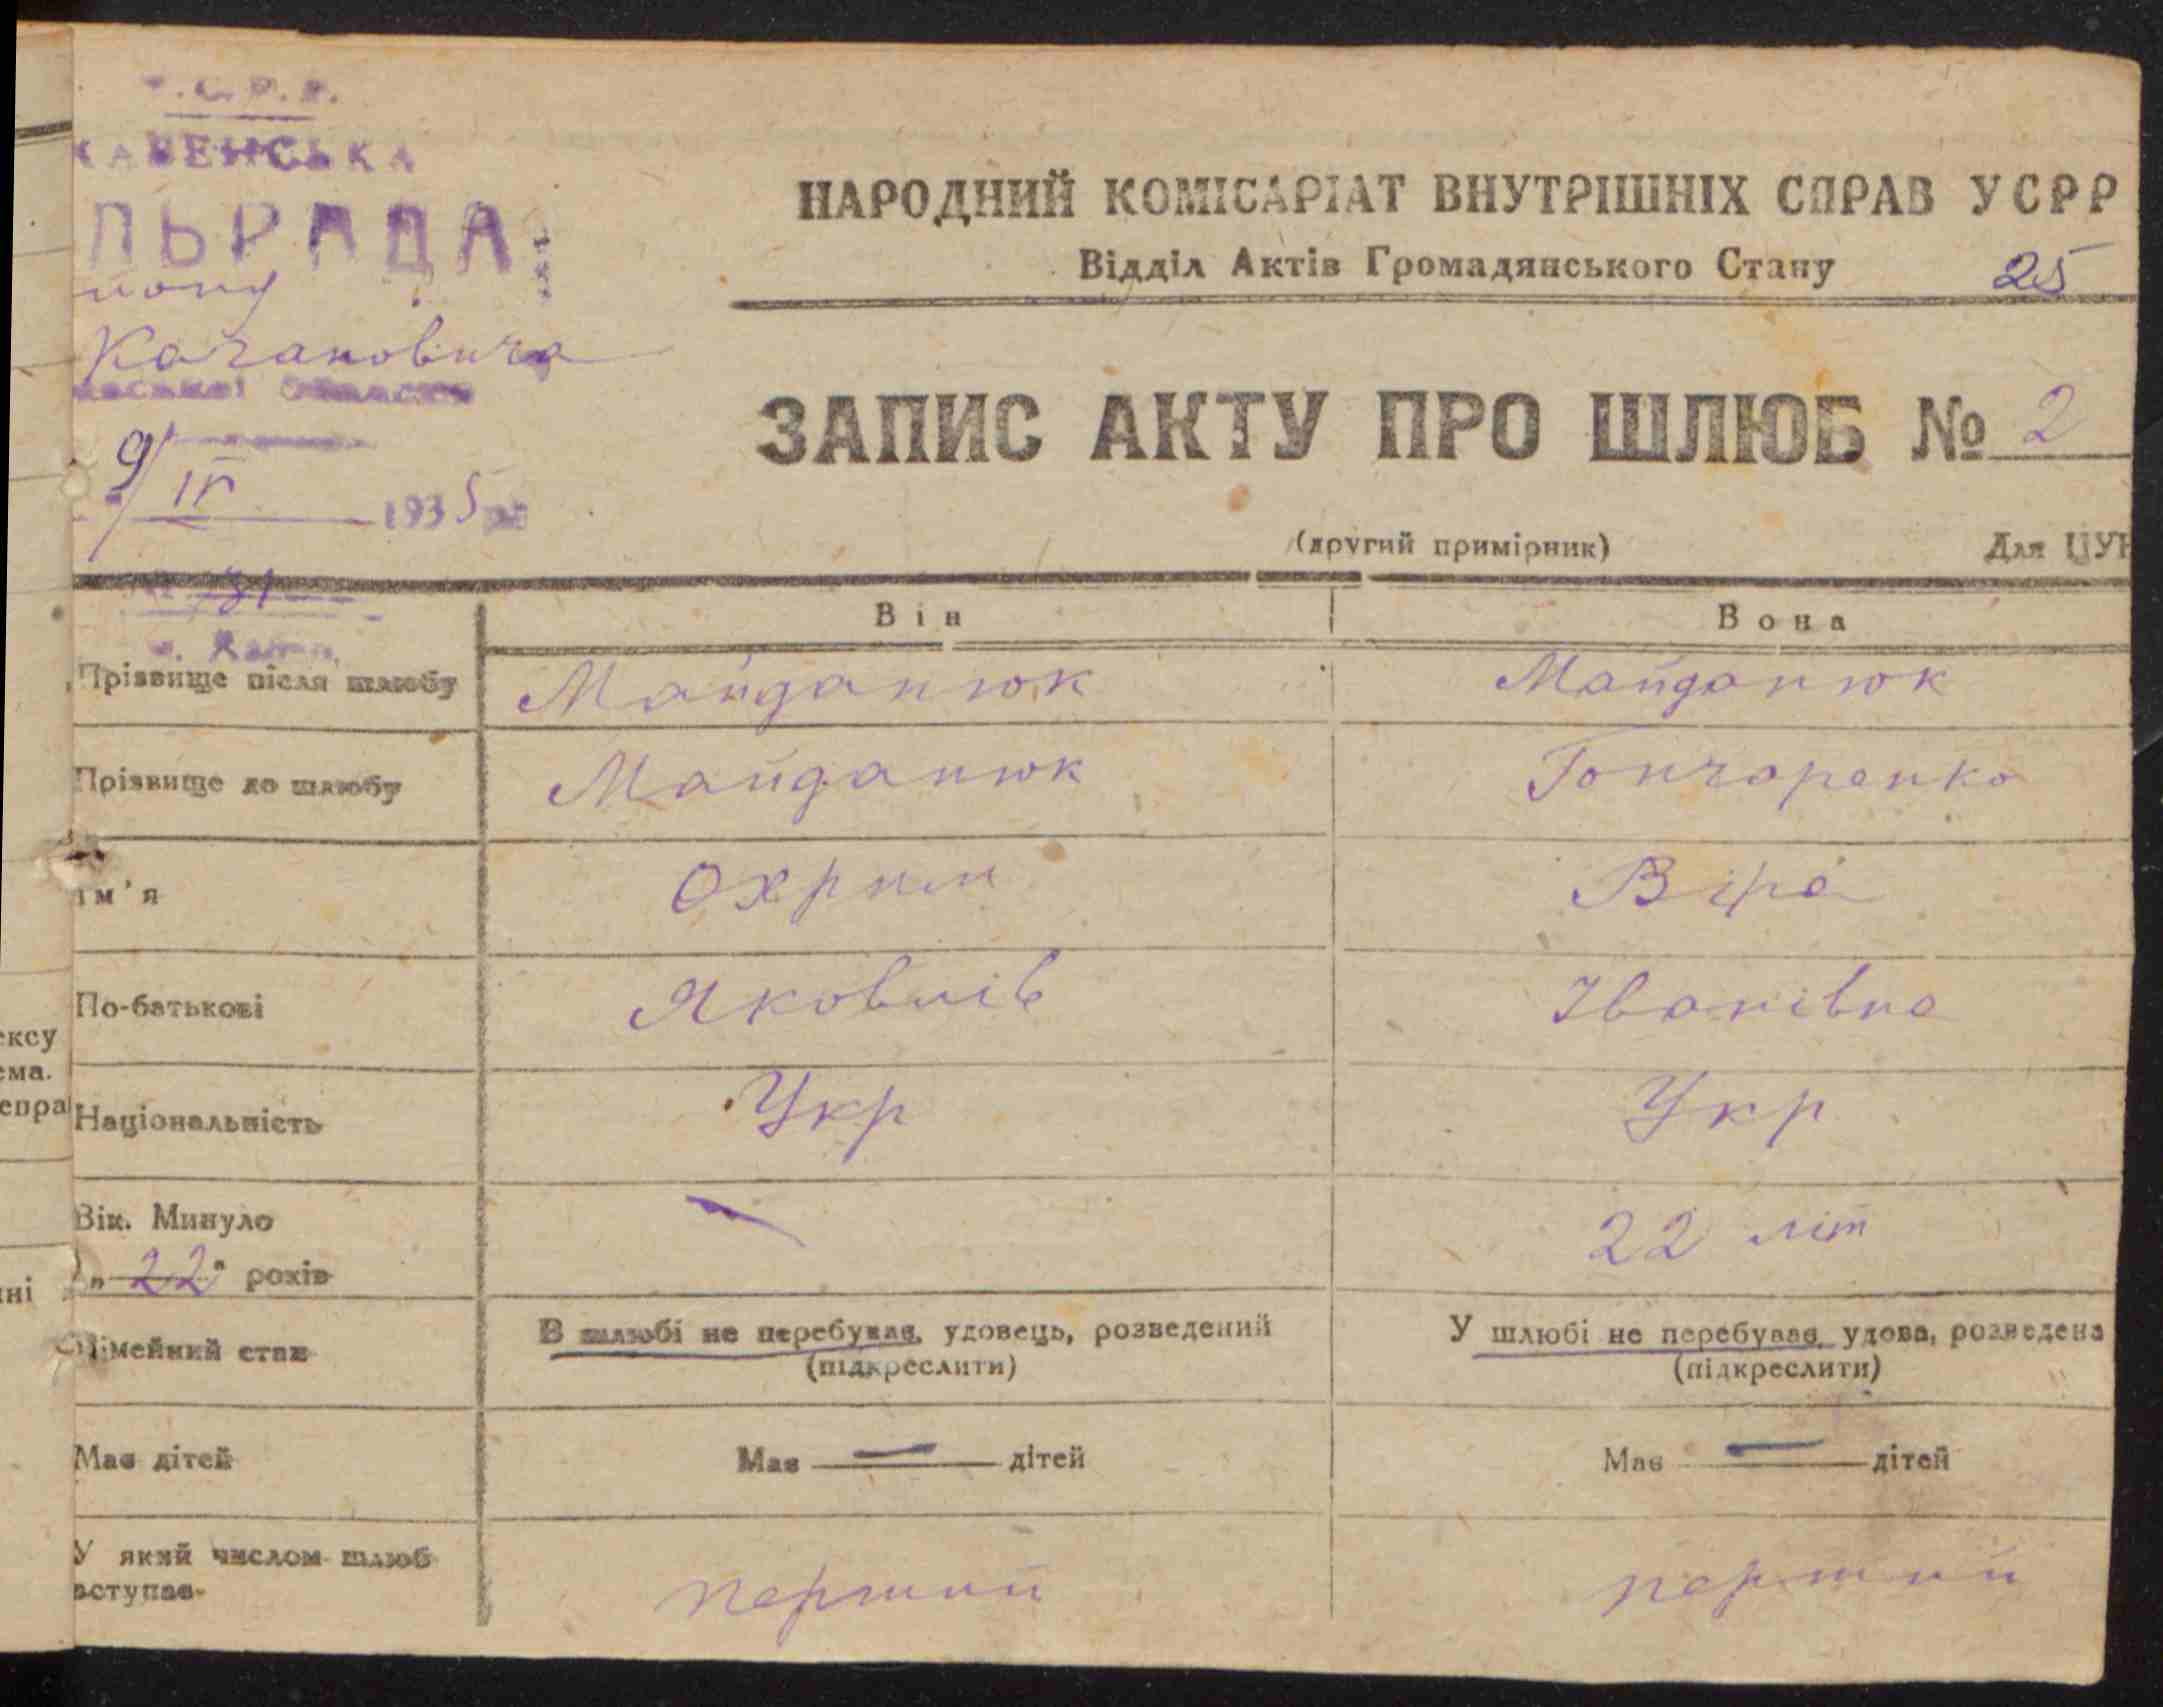 У.С.Р.Р.
КАМЕНСЬКА
ЛЬРАДА
йону
Кагановича
Області
9/IV 1935
31
НАРОДНИЙ КОМІСАРІАТ ВНУТРІШНІХ СПРАВ УСРР
Відділ Актів Громадянського Стану 25
ЗАПИС АКТУ ПРО ШЛЮБ № 2
(другий примірник) Для ЦУН
Він Вона
Прізвище після шлюбу Майданюк Майданюк
Прізвище до шлюбу Майданюк Гончаренко
Ім'я Охрим Віра
По-батькові Яковлів Іванівна
Національність Укр Укр
Вік. Минуло
„ 22 " років 22 літ
Сімейний стан В шлюбі не перебував, удовець, розведений У шлюбі не перебував, удова, розведена
(підкреслити) (підкреслити)
Має дітей Має — дітей Має — дітей
У який числом шлюб
вступає перший перший
ексу
ема.
епра
ні